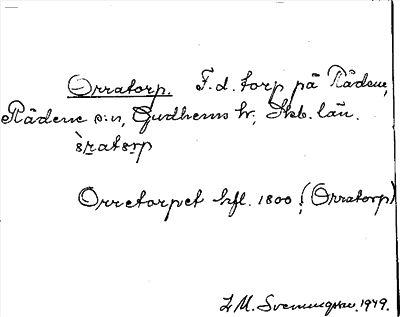 Orratorp. F.d. torp på Rådene,
Rådene s:n, Gudhems hr, Skb. län.
òratorp
Orretorpet hfl. 1800 (Orratorp)
M. Svenungsson. 1979.